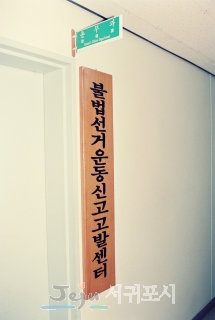 불법선거운동신고고발센터
Jeju 서귀포시